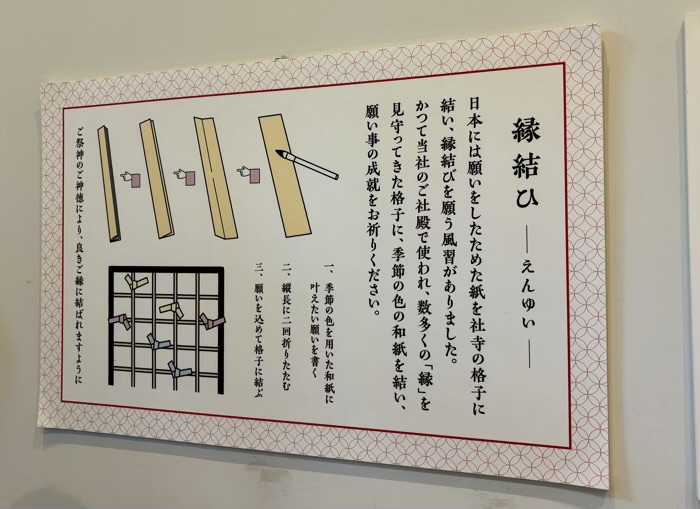 縁結ひ
―えんゆい―
日本には願いをしたためた紙を社寺の格子に
結い、縁結びを願う風習がありました。
かつて当社のご社殿で使われ、数多くの「縁」を
見守ってきた格子に、季節の色の和紙を結い、
願い事の成就をお祈りください。
一、季節の色を用いた和紙に
叶えたい願いを書く
二、縦長に二回折りたたむ
三、願いを込めて格子に結ぶ
ご祭神のご神徳により、良きご縁に結ばれますように